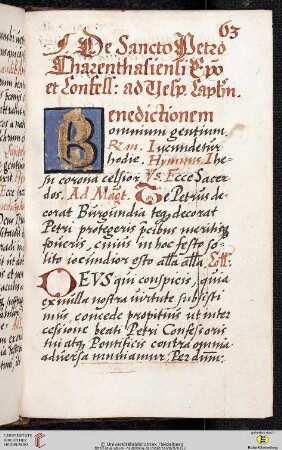 63
De Sancto Petro
Tharenthasiensi Epo
et Confess: ad Vesp. Capłm.
Benedictionem
omnium gentium.
Rm. Iucundetur
hodie. Hymnus. Ihe-
su corona celsior. Vs. Ecce Sacer
dos. Ad Magt. Te Petrus de-
corat Burgundia teq; decorat
Petri protegeris pcibus meritisq;
foueris, cuius in hoc festo so-
lito iocundior esto alła alła. Coll.
DEVS qui conspicis, quia
ex nulla nostra virtute subsisti
mus, concede propitius ut inter
cessione beati Petri Confessoris
tui atq; Pontificis contra omnia
aduersa muniamur. Per dnm:
UNIVERSITÄTS-
BIBLIOTHEK
HEIDELBERG
© Universitätsbibliothek Heidelberg
Baden-Württemberg